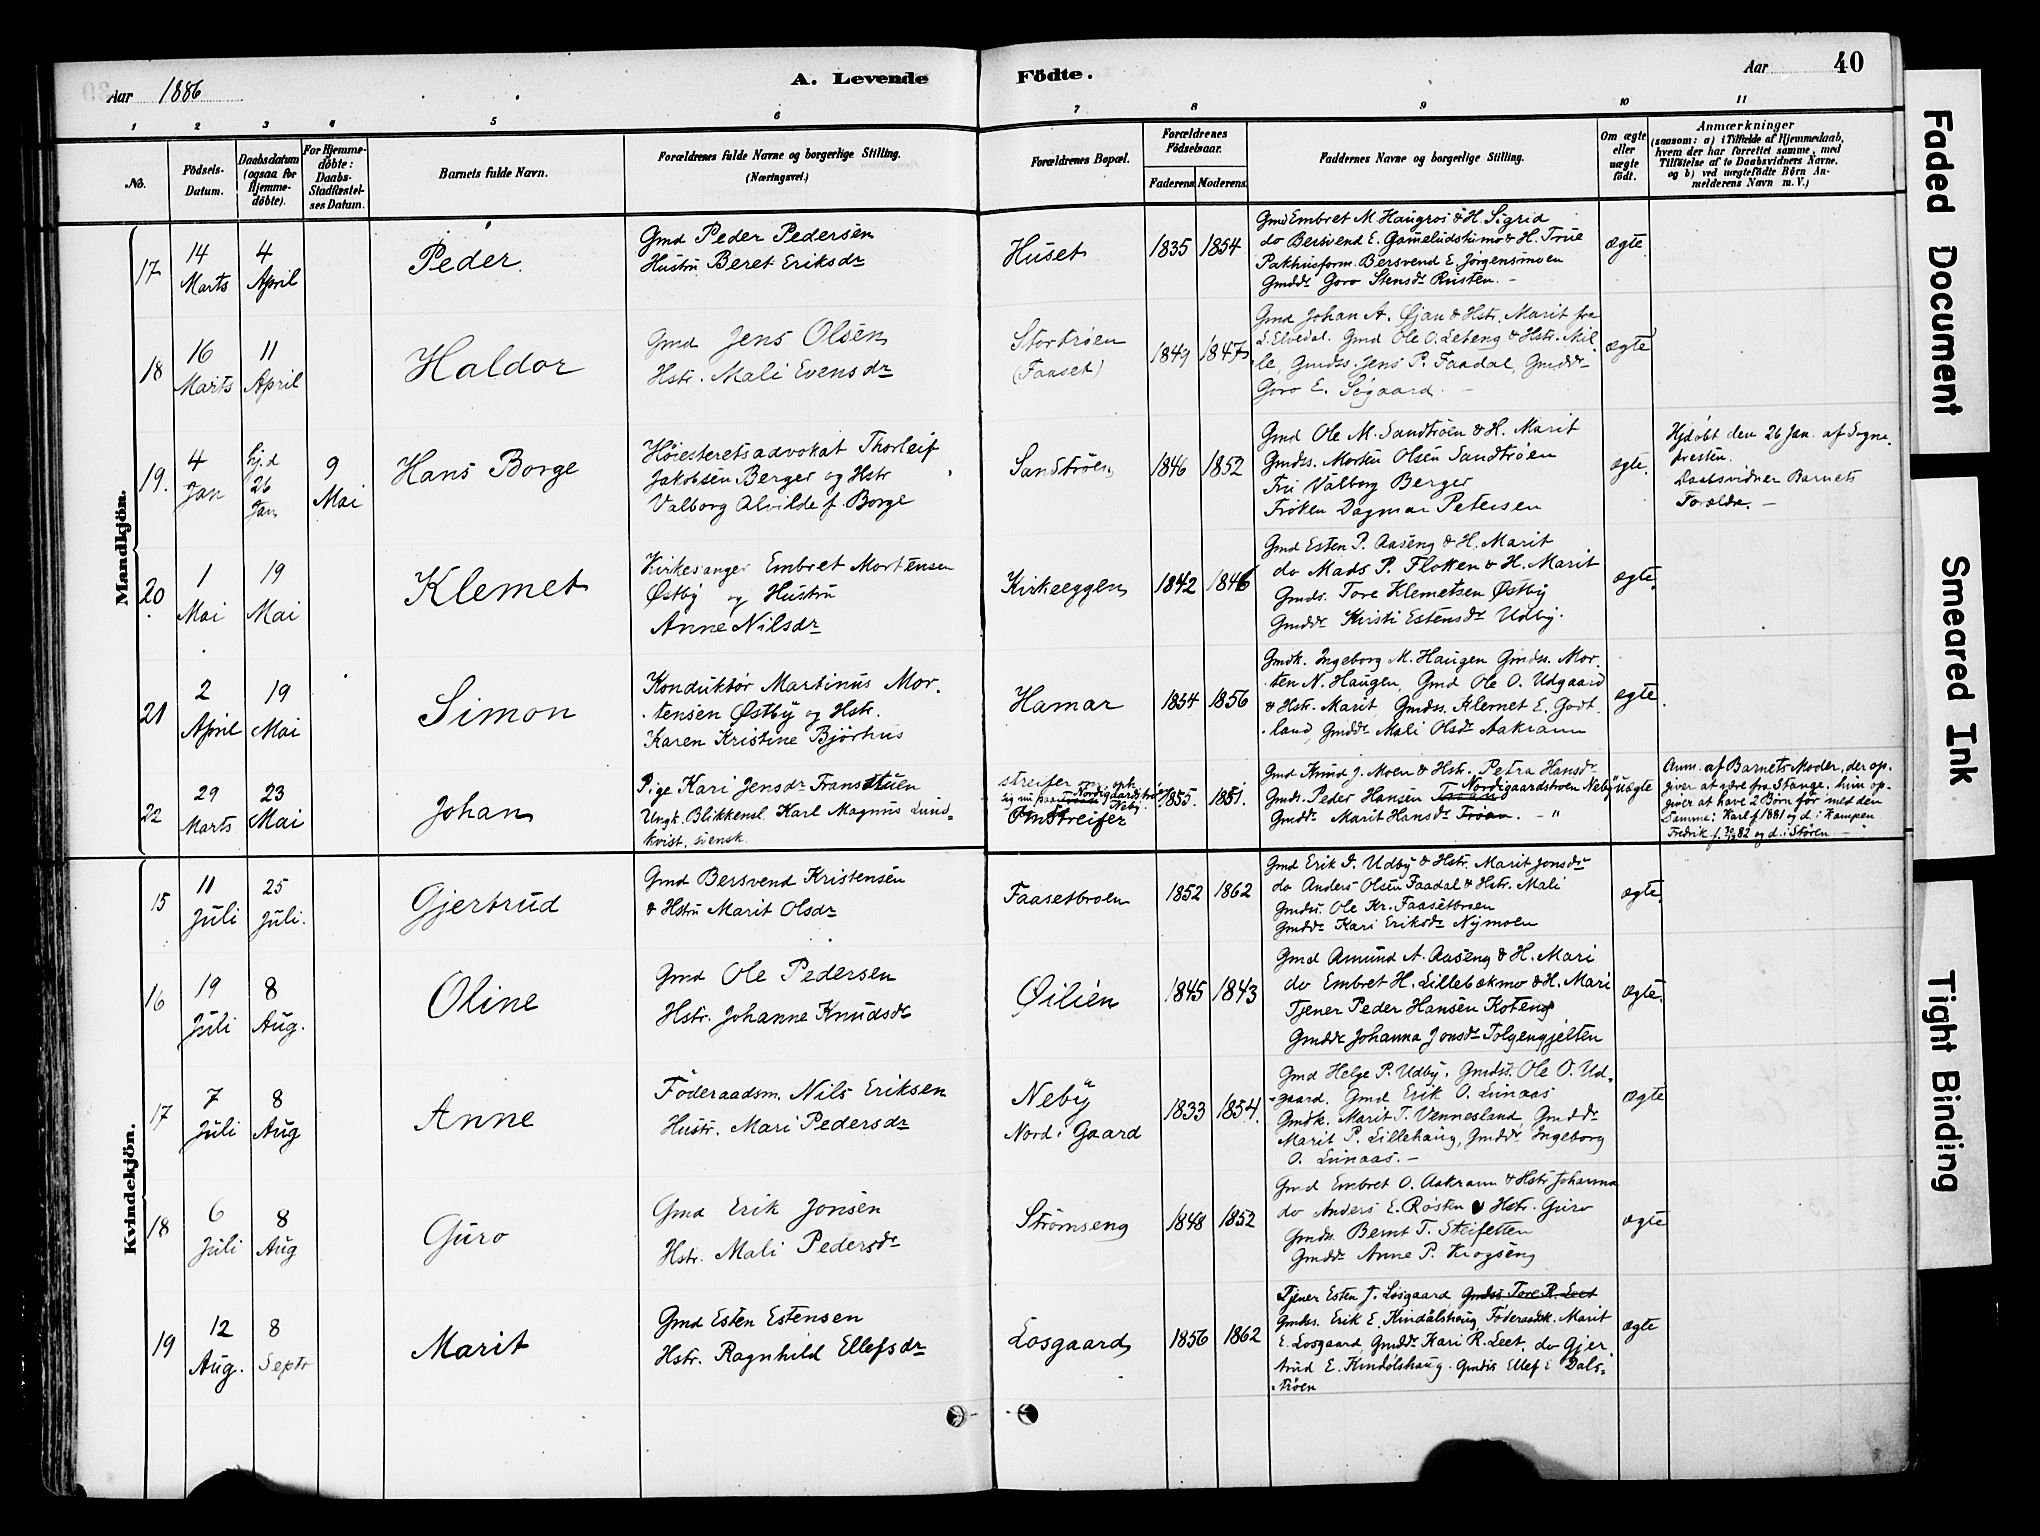 Aar 1886
A. Levende Födte.
Aar 40
1 2 3 4 5 6 7 8 9 10 11
No.
Födsels-Datum.
Daabsdatum (ogsaa for Hjemme-döbte).
For Hjemme-döbte: Daabs-Stadfæstel-ses Datum.
Barnets fulde Navn.
Forældrenes fulde Navne og borgerlige Stilling.
(Næringsvei.)
Forældrenes Bopæl.
Forældrenes Födselsaar.
Faderens Moderens
Faddernes Navne og borgerlige Stilling.
Om ægte eller uægte födt.
Anmærkninger
(saasom: a) i Tilfælde af Hjemmedaab,
hvem der har forrettet samme, med
Tilföielse af to Daabsvidners Navne.
og b) ved uægtefödte Börn An-
melderens Navn m. V.)
Mandkjön.
17
14 Marts
4 April
Peder
Gmd Peder Pedersen
Hustru Beret Eriksdr
Huset
1835 1854
Gmd Embret M. Haugros & H. Sigrid
do Bersvend E. H. True
Pakhusform. Bersvend E. Jørgensmoen
Gmddr Goro Stensdr Rusten. -
ægte
18
16 Marts
11 April
Haldor
Gmd Jens Olsen
Hstr. Mali Evensdr
Stortrøen
(Faaset)
1849 1847
Gmd Johan A. Øjan & Hstr. Marit fra
L. Elvedal. Gmd Ole O. Leteng & Hstr. Mil-
le, Gmdss. Jens P. Faadal, Gmddr
Goro E. Søgaard. -
ægte
19.
4 Jan
hj.d 26 Jan
9 Mai
Hans Borge
Høiesteretsadvokat Thorleif
Jakobsen Berger og Hstr
Valborg Alvilde f. Borge
Sandtrøen
1846 1852
Gmd Ole M. Sandtrøen & H. Marit
Gmdss. Morten Olsen Sandtrøen
Fru Valborg Berger
Frøken Dagmar Petersen
ægte.
Hjdøbt den 26 Jan. af Sogne-
presten.
Daabsvidner Barnets
Forældre. -
20
1 Mai
19 Mai
Klemet
Kirkesanger Embret Mortensen
Østby og Hustru
Anne Nilsdr
Kirkeeggen
1842 1846
Gmd Esten P. Aaseng & H. Marit
do Mads P. Floken & H. Marit
Gmds. Tore Klemetsen Østby
Gmddr Kirsti Estensdr Udby.
ægte.
21
2 April
19 Mai
Simon
Konduktør Martinus Mor-
tensen Østby og Hstr.
Karen Kristine Bjørhus
Hamar
1854 1856
Gmdk. Ingeborg M. Haugen Gmdss. Mor-
ten N. Haugen, Gmd Ole O. Udgaard
& Hstr. Marit, Gmdss. Klemet E. Godt-
land, Gmddr Mali Olsdr Aakrann
ægte.
22
29 Marts
23 Mai
Johan
Pige Kari Jensdr Transtuen
Ungk. Blikkensl. Karl Magnus Lund-
kvist, svensk.
streifer om, oph.
sig nu paa Troan Nordigaardstroen Neby.
Omstreifer
1855. 1851.
Gmd Knud J. Moen & Hstr. Petra Hansdr
Gmds. Peder Hansen Troan Nordigaardstroen Neby
Gmddr Marit Hansdr Troan. - "
uægte
Anm. af Barnets Moder, der op-
giver at være fra Stange. hun op-
giver at have 2 Børn før med den
Samme: Karl f. 1881 og d. i Kampen
Fredrik f. 82 og d. i Støren. -
Kvindekjön.
15
11 Juli
25 Juli.
Gjertrud
Gmd Bersvend Kristensen
& Hstru Marit Olsdr
Faasetbroen
1852 1862
Gmd Erik I. Udby & Hstr. Marit Jonsdr
do Anders Olsen Faadal & Hstr. Mali
Gmds. Ole Kr. Faasetbroen
Gmddr Kari Eriksdr Nymoen
ægte.
16
19 Juli
8 Aug.
Oline
Gmd Ole Pedersen
Hstr. Johanne Knudsdr
Øilien
1845 1843
Gmd Amund A. Aaseng & H. Mari
do Embret H. Lillebakmo & H. Mari
Tjener Peder Hansen Koteng
Gmddr Johanna Jonsdr Tolgengjelten
ægte.
17
7 Juli
8 Aug
Anne
Föderaadsm. Nils Eriksen
Hustr. Mari Pedersdr
Neby
Nord i Gaard
1833 1854.
Gmd Helge P. Udby. Gmdss. Ole O. Ud-
gaard. Gmd Erik O. Lunaas
Gmdk. Marit T. Vennesland, Gmddr
Marit P. Lillehaug, Gmddr. Ingeborg
O. Lunaas. -
ægte
18
6 Juli
8 Aug
Guro
Gmd Erik Jonsen
Hstr. Mali Pedersdr
Strømseng
1848 1852
Gmd Embret O. Aakrann & Hstr Johanna
do Anders E. Røsten & Hstr. Guro
Gmds. Bernt T. Steifetten
Gmddr Anne P. Krogseng
ægte
19
12 Aug.
8 Septr
Marit
Gmd Esten Estensen
Hstr. Ragnhild Ellefsdr
Losgaard
1856 1862
Tjener Esten J. Losgaard Gmdss. Tore R. Leet
Gmdss. Erik E. Kindølshaug, Föderaadsk. Marit
E. Losgaard, Gmddr Kari R. Leet. do Gjer-
trud E. Kindølshaug. Gmdss Ellef E Dals-
trøen
ægte
Faded Document
Smeared Ink
Tight Binding